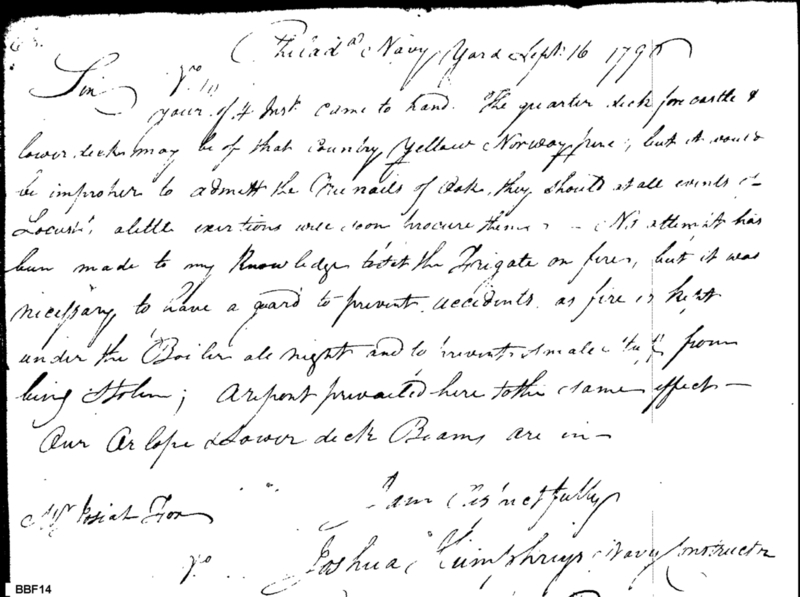 Philad.ª Navy Yard Sept. 16 1796
Sir
your of 4 Inst. came to hand. The quarter deck forecastle &
lower decks may be of that Country Yellow Norway pine, but it would
be improper to admitt the Treenails of Oak, they should at all events
Locust, a little exertions will soon procure them - No attempt has
been made to my Knowledge to set the Frigate on fire, but it was
necessary to have a guard to prevent accidents as fire is kept
under the Boiler all night and to prevent small from
being Stolen; A report prevailed here to the same effect -
Our Orlope & Lower deck Beams are in -
I am Respectfully
Mr Josiah Fox
Joshua Humphreys Navy Constructor
BBF14